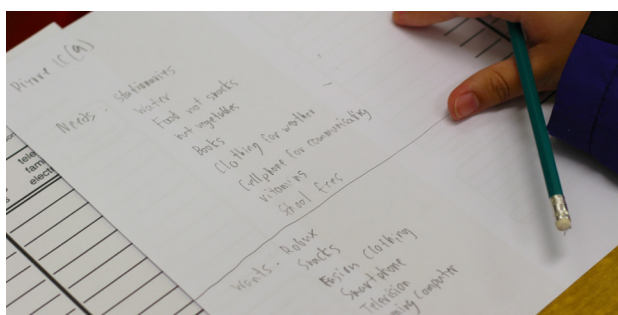 Needs - Stationaries
Water
Food not snacks
but vegetables
Books
Clothing for weather
Cellphone for communicating
vitamins
School fees
Wants - Robux
Snacks
Fusion Clothing
Smartphone
Television
Computer
tele
fami
elect